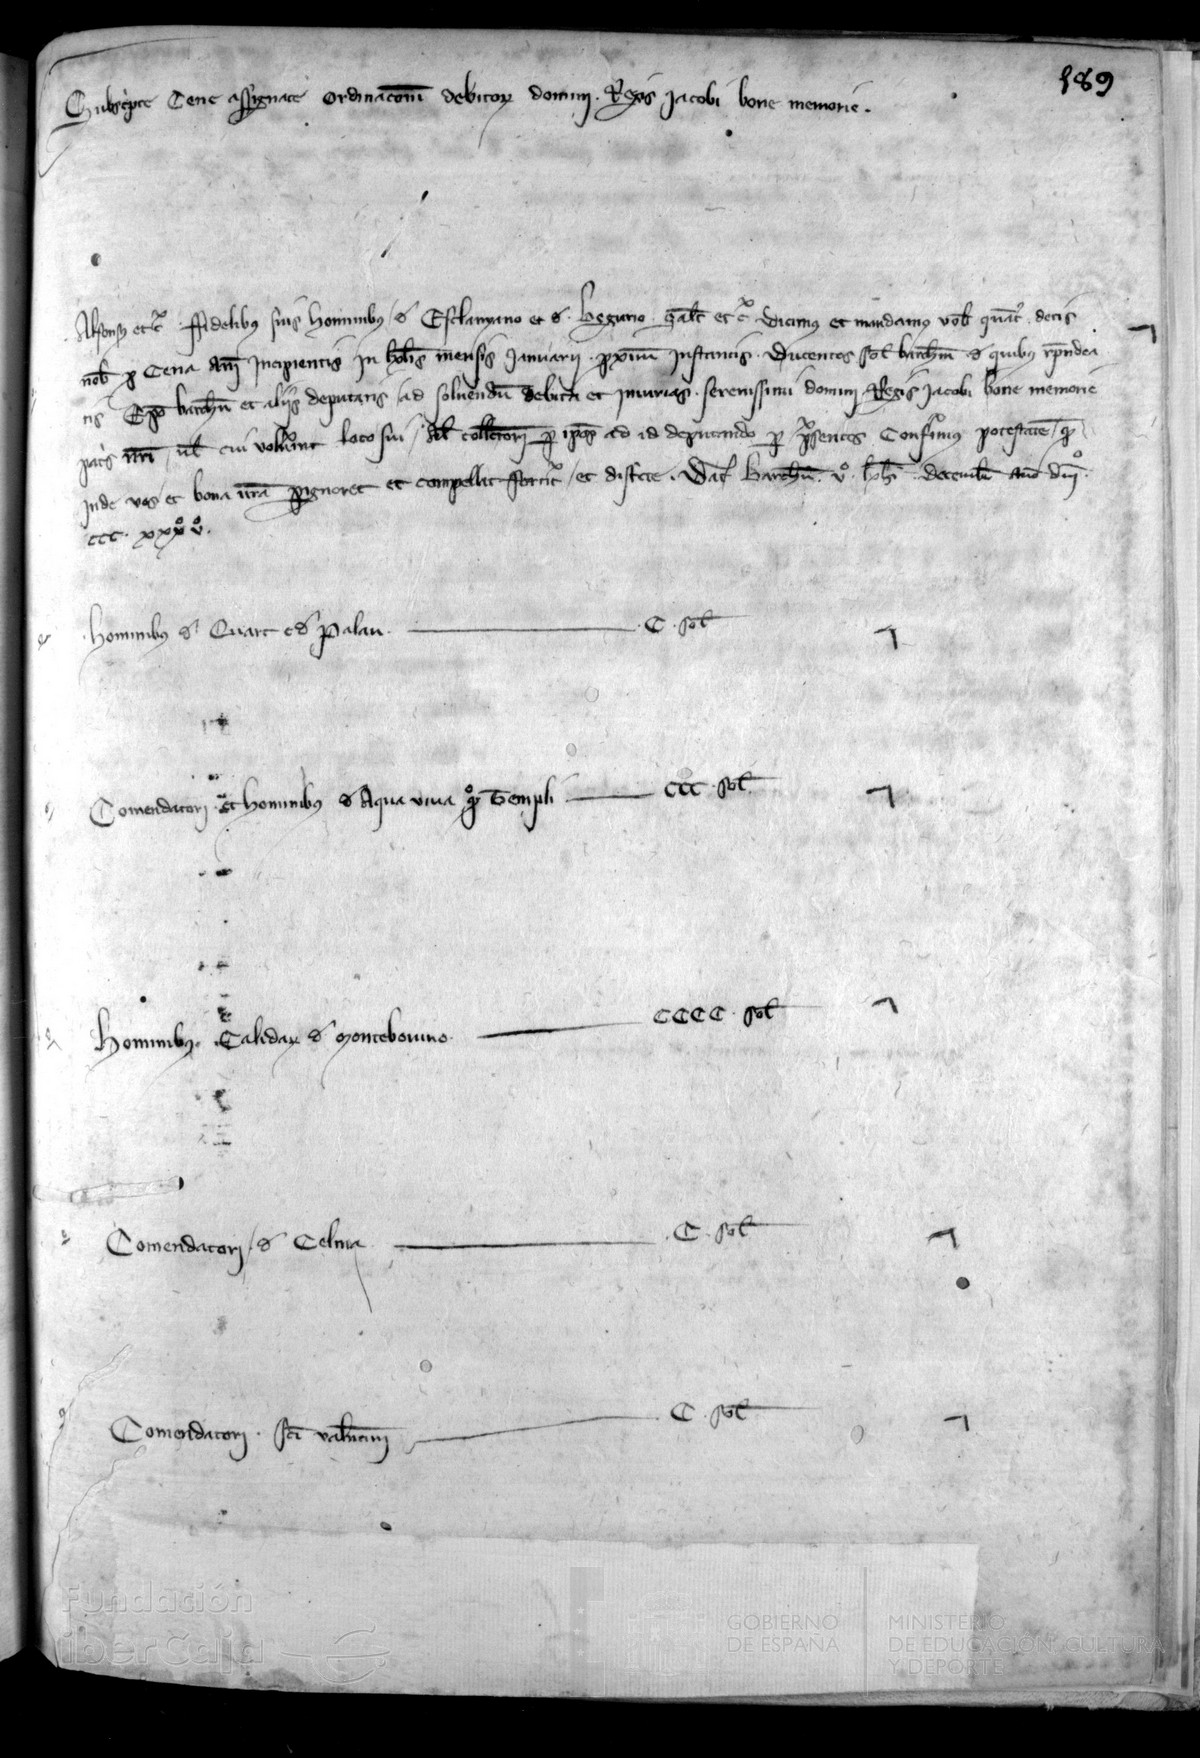 189
Subscripte Cene assignate ordinacioni debitorum domini Regis Jacobi bone memorie.
Alfonsus etc. ffidelibus suis hominibus de Esclanyano et de Begurio. Salutem etc. Dicimus et mandamus vobis quatenus detis
nobis pro Cena anni Incipientis In kalendis mensis Januarii proximi instantis. Ducentos solidos barchinonensium de quibus respondea
tis Episcopo barchinone et aliis deputatis ad solvendum debita et iniurias serenissimi domini Regis Jacobi bone memorie
patris nostri vel cui voluerint loco sui. collectori per ipsos ad id deputando per presentes Conferimus potestatem quod
inde vos et bona vestra pignoret et compellat fortiter et districte. Data Barchinone. vº. kalendas decembris anno domini. Mº.
CCC. xxxº. vº.
hominibus de Quart et de Palau C. sol
Comendatori et hominibus de Aqua viva Templi CCC. sol
Hominibus Calidarum de Montebovino CCCC. sol
Comendatori de Celma C. sol
Comendatori. sci valentini C. sol
Fundación
iberCaja
GOBIERNO
DE ESPAÑA
MINISTERIO
DE EDUCACIÓN, CULTURA
Y DEPORTE